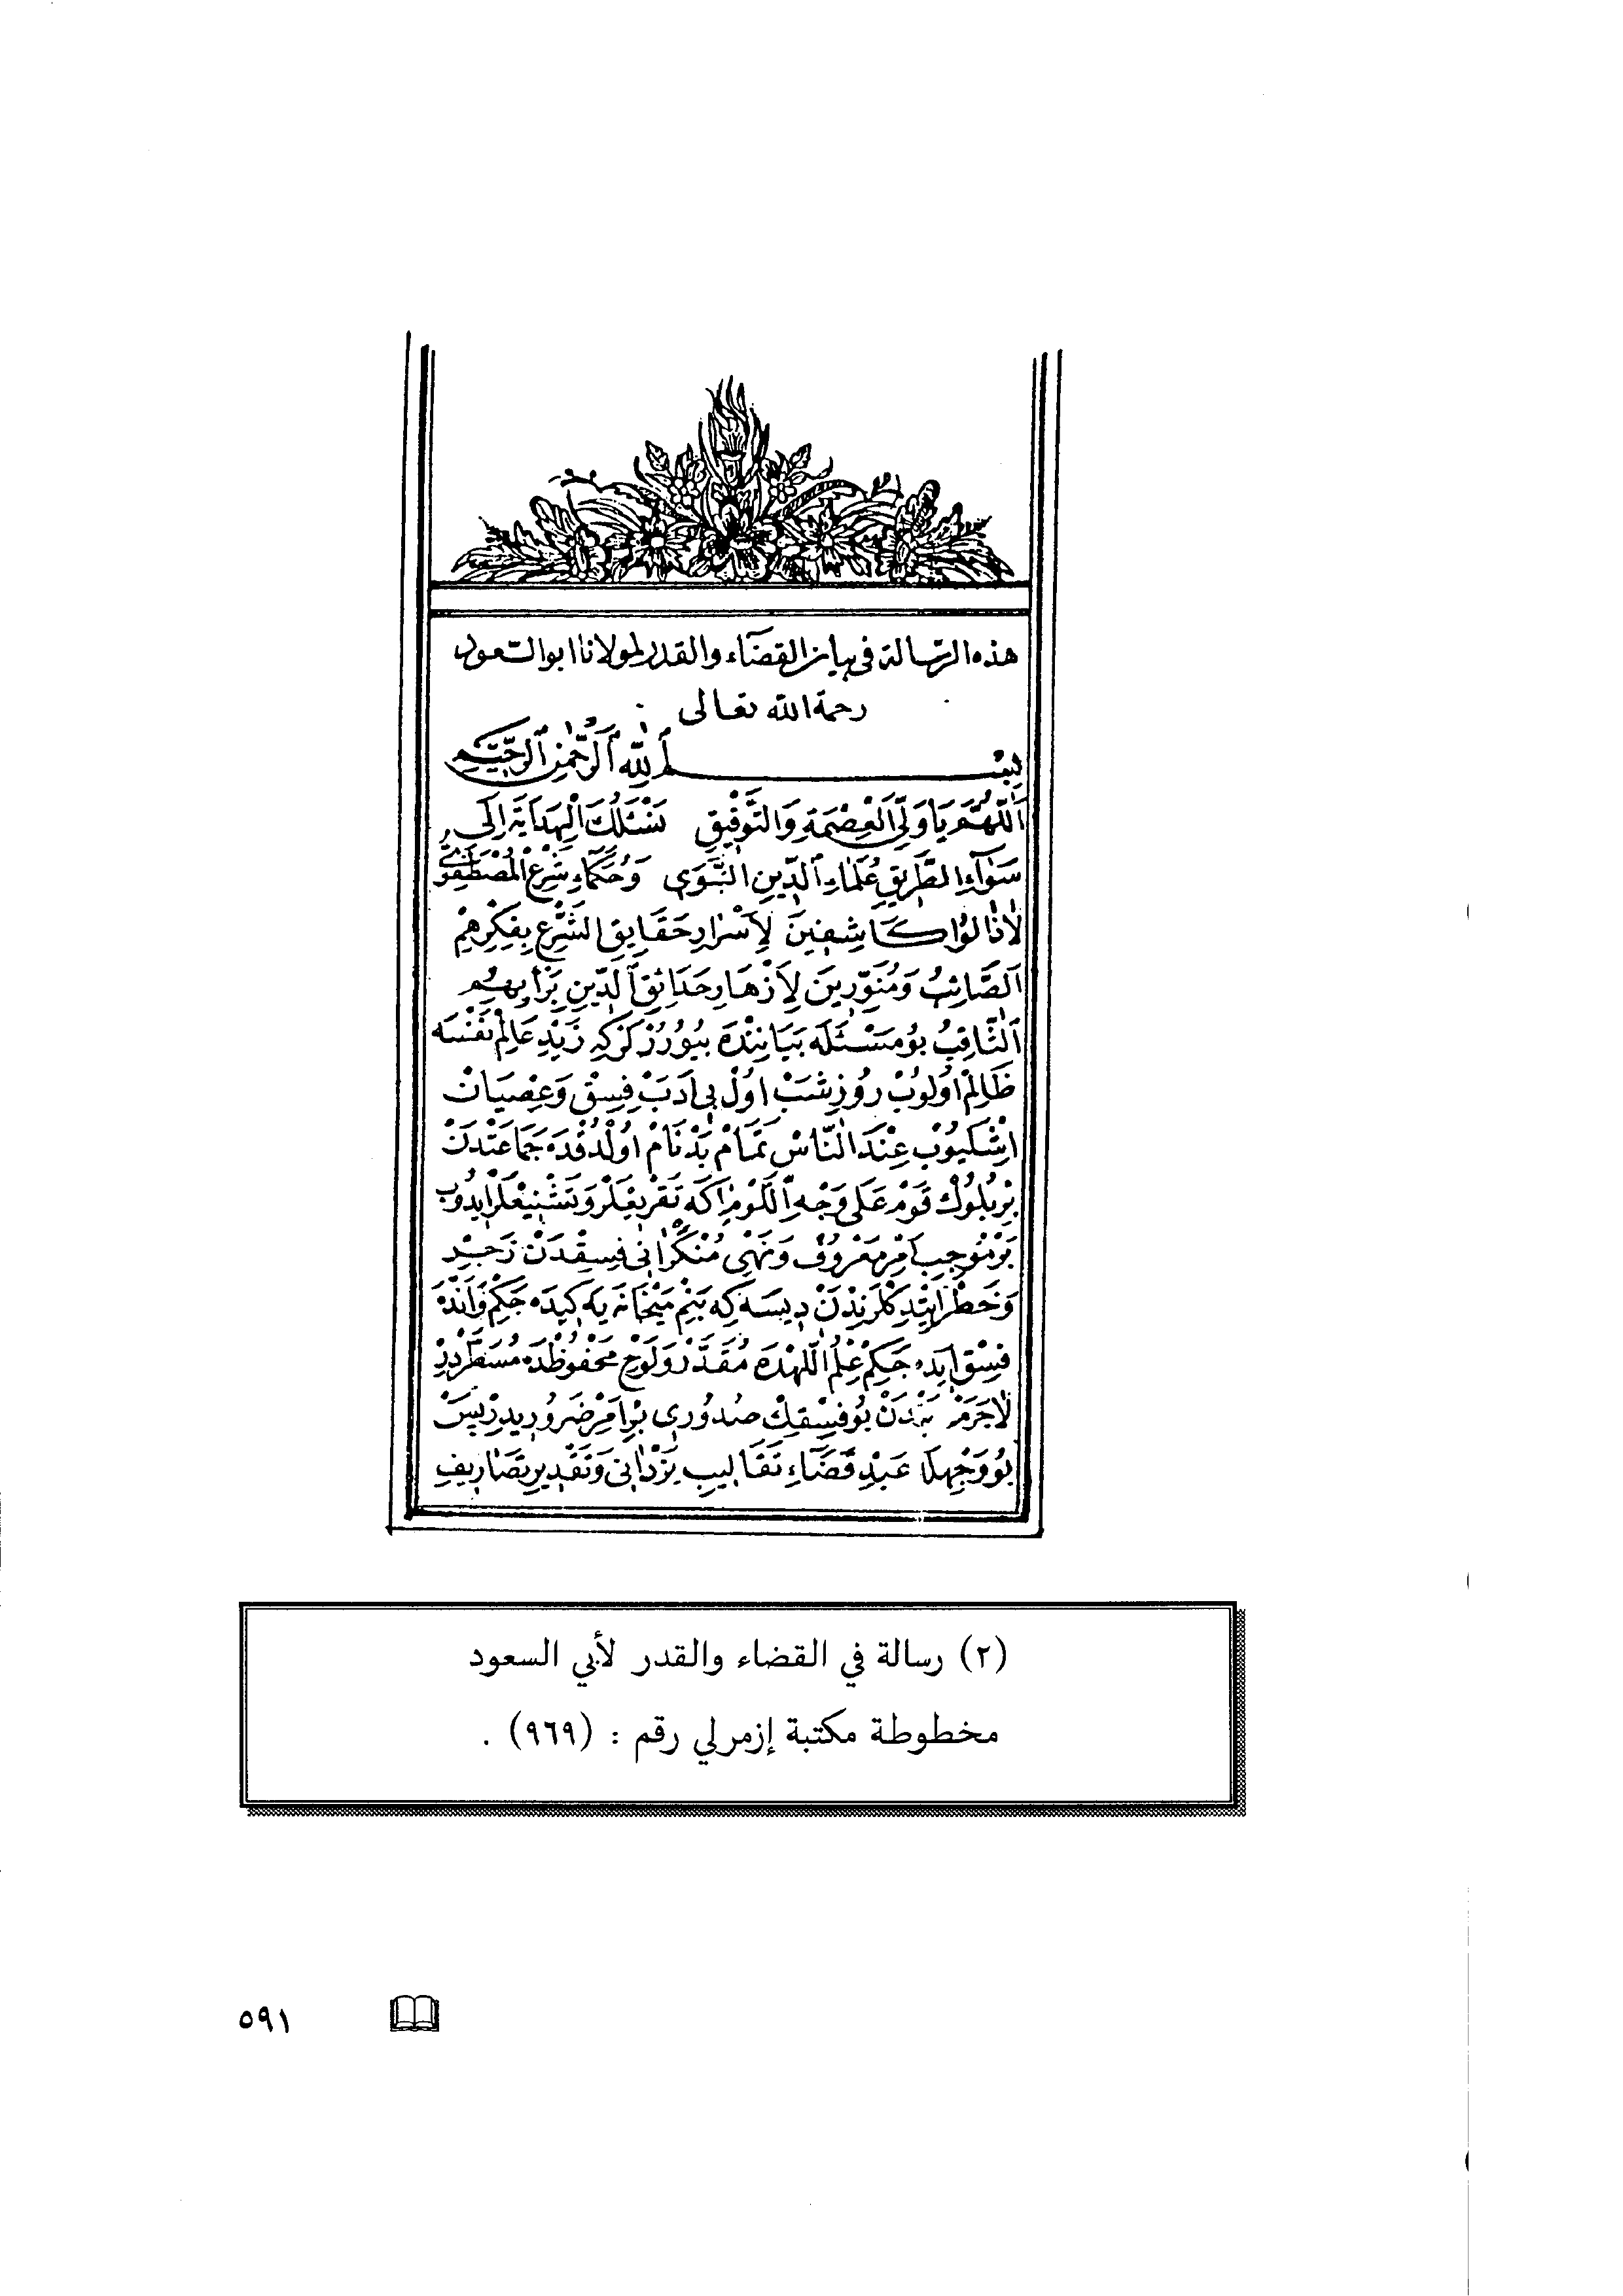 هذه الرسالة فى بيان القضآء والقدر لمولانا ابو السعود
رحمة الله تعالى
بِسْمِ اللهِ الرَّحْمٰنِ الرَّحِيمِ
اَللّٰهُمَّ يَا وَلِىَّ الْعِصْمَةِ وَالتَّوْفِيقِ نَسْئَلُكَ الْهِدَايَةَ اِلَى
سَوَآءِ الطَّرِيقِ عُلَمَاءِ الدِّينِ النَّبَوِى وَحُكَمَاءِ شَرْعِ الْمُصْطَفَوِى
لَازَالُوا كَاشِفِينَ لِاَسْرَارِ حَقَايِقِ الشَّرْعِ بِفِكْرِهِمْ
اَلصَّائِبُ وَمُنَوِّرِينَ لِاَزْهَارِ حَدَائِقِ الدِّينِ بِرَأْيِهِمْ
اَلثَّاقِبُ بُو مَسْئَلَه بَيَانِنْدَه بُيُورُرْلَرْكِه زَيْدِ عَالِمْ نَفْسَه
ظَالِمْ اُولُوبْ رُوزِ شَبْ اُولْ بِى اَدَبْ فِسْق وَعِصْيَانْ
اِشْلَيُوبْ عِنْدَ النَّاسْ تَمَامْ بَدْنَامْ اُولْدُقْدَه جَمَاعَتْدَنْ
بِرْ بُلُوكْ قَوْمْ عَلَى وَجْهِ اللَّوْمْ اَكَه تَقْرِيعْلَرْ وَتَشْنِيعْلَرْ اِيدُوبْ
بَرْ مُوجِبِ اَمْرِ مَعْرُوفْ وَنَهْىِ مُنْكَرْ اَنِى فِسِقْدَنْ زَجِرْ
وَحَظْرْ اِيتْدِكْلَرِنْدَنْ دِيسَه كِه بَنِمْ مَيْخَانَه يَه كِيدَه جَكِمْ وَانْدَه
فِسْق اِيدَه جَكِمْ عِلْمُ اللّٰهْدَه مُقَدَّرْ وَلَوْحِ مَحْفُوظْدَه مُسَطَّرْدِرْ
لَاجَرَمْ بَنْدَنْ بُو فِسْقِكْ صُدُورِى بِرْ اَمْرِ ضَرُورِيدِرْ پَسْ
بُو وَجْهِلَه عَبْدِ قَضَاءِ تَقَالِيبِ يَزْدَانِى وَتَقْدِيرِ تَصَارِيفِ
(٢) رسالة في القضاء والقدر لأبي السعود
مخطوطة مكتبة إزمرلي رقم : (٩٦٩) .
٥٩١